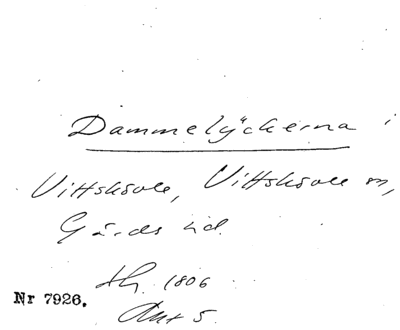 Dammelyckerna i
Vittskövle, Vittskövle sn,
Gärds hd.
1806
Nr 7926.
Akt 5.